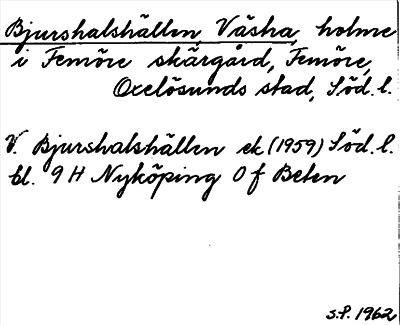 Bjurshalshällen, Västra, holme
i Femöre skärgård, Femöre,
Oxelösunds stad, Söd. l.
V. Bjurshalshällen ek (1959) Söd. l.
bl. 9 H Nyköping 0 f Beten
S.P. 1962